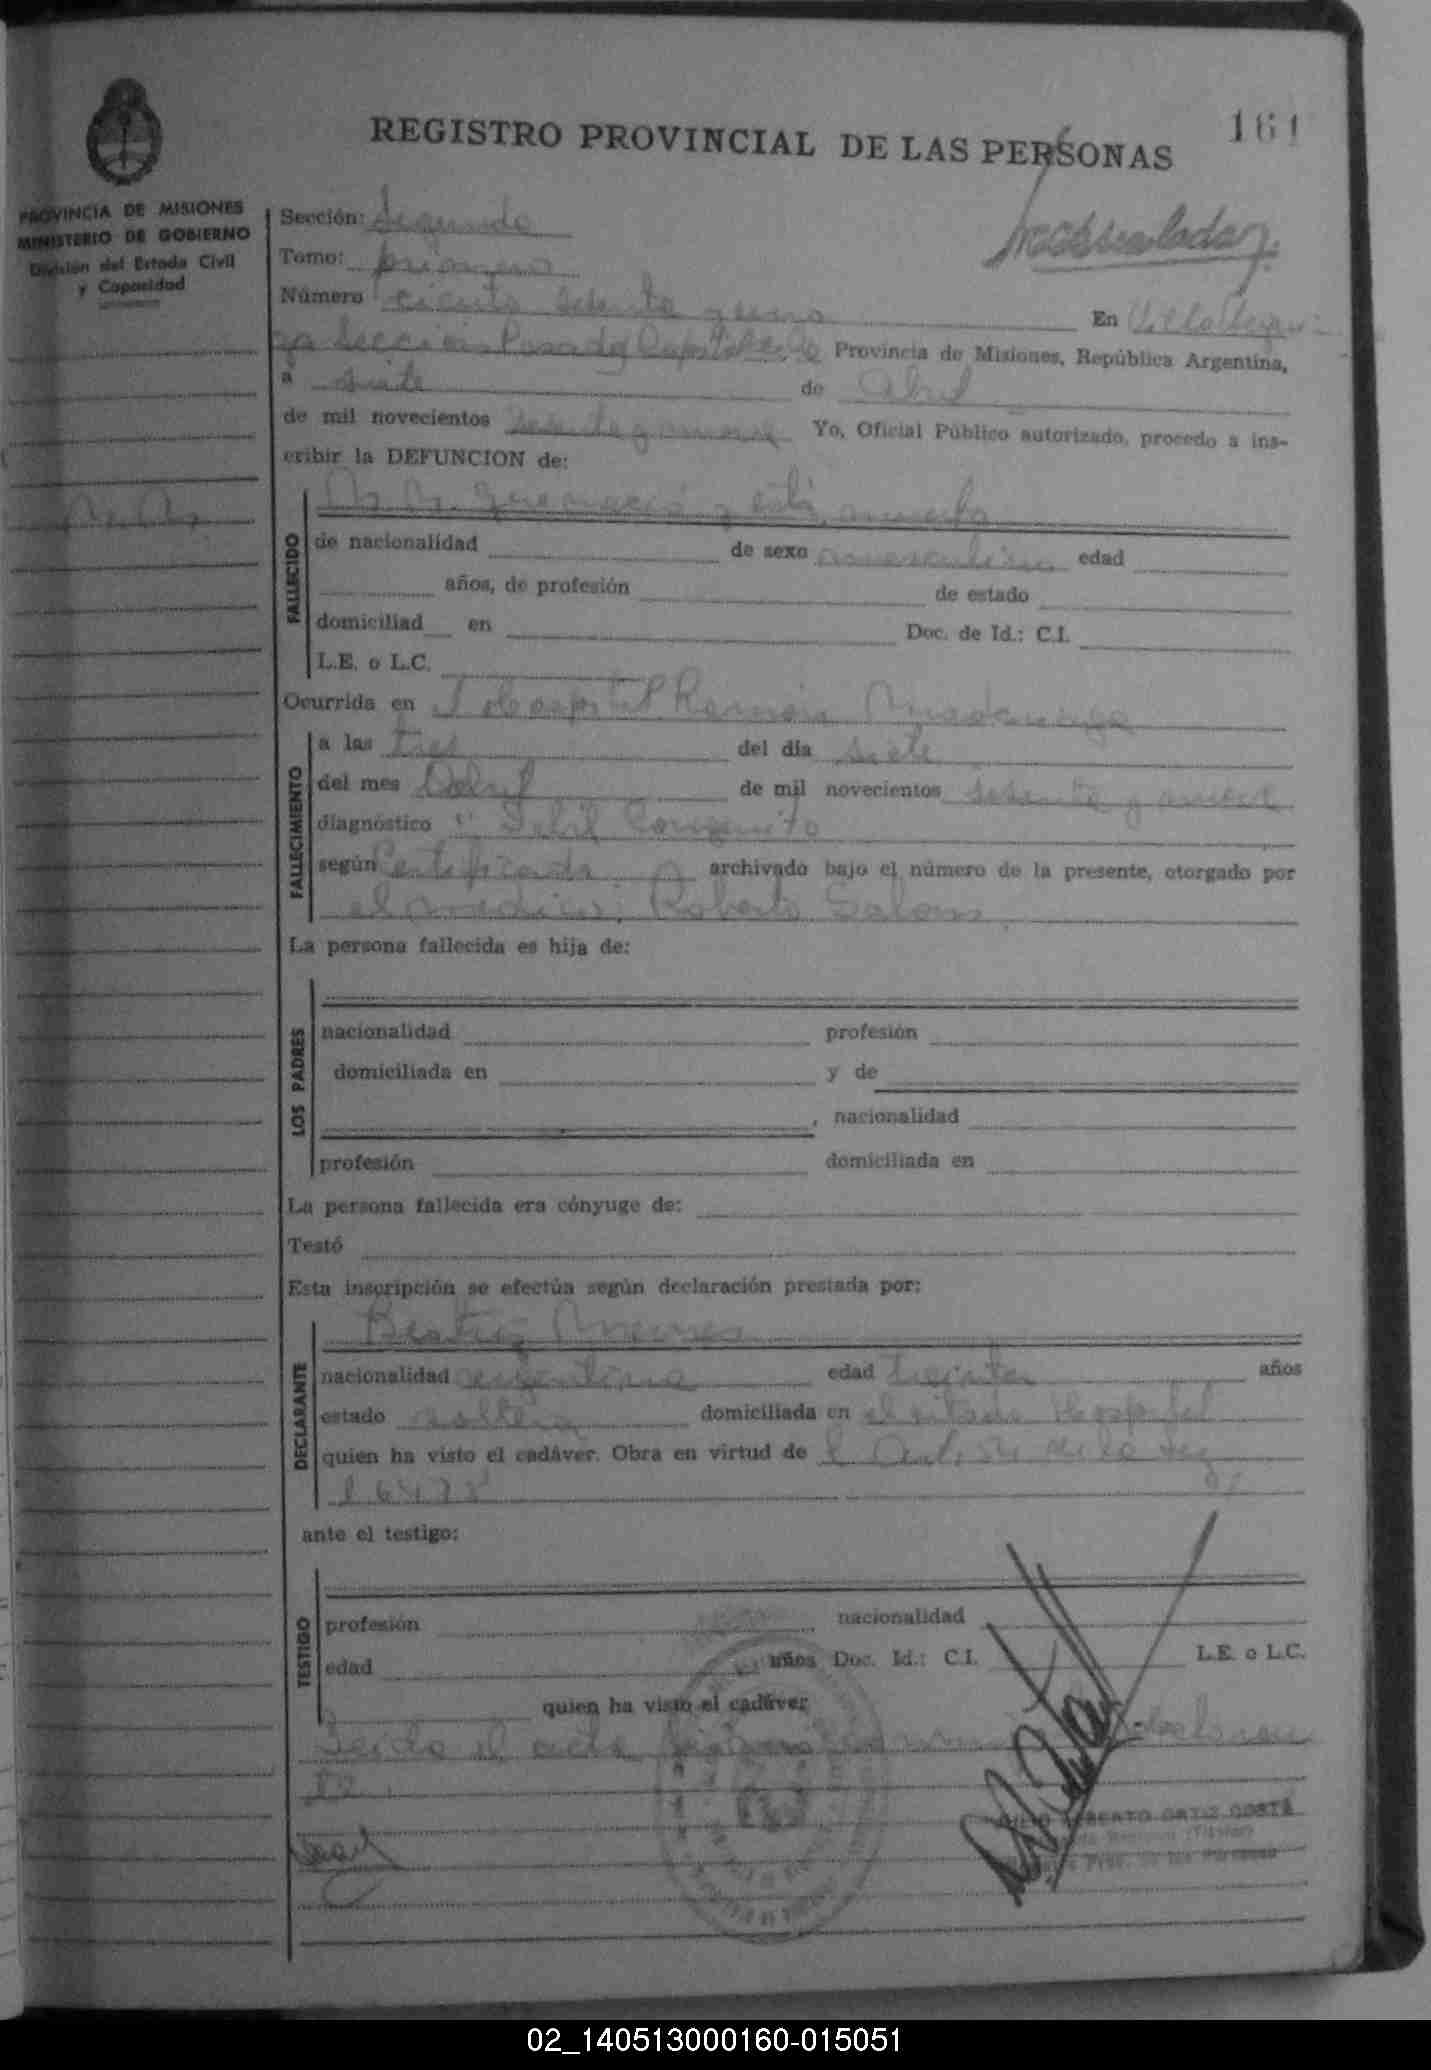 161
REGISTRO PROVINCIAL DE LAS PERSONAS
PROVINCIA DE MISIONES
MINISTERIO DE GOBIERNO
División del Estado Civil
y Capacidad
Sección: Segunda
Tomo: primero
Número ciento sesenta y uno En Villa Segun-
da Sección Posadas Capital de la Provincia de Misiones, República Argentina,
a siete de Abril
de mil novecientos sesenta y nueve Yo, Oficial Público autorizado, procedo a ins-
cribir la DEFUNCION de:
N. N.
N. N. muerto
FALLECIDO
de nacionalidad de sexo masculino edad
años, de profesión de estado
domiciliad en Doc. de Id.: C.I.
L.E. o L.C.
Ocurrida en Hospital Ramón Madariaga
FALLECIMIENTO
a las tres del día siete
del mes Abril de mil novecientos sesenta y nueve
diagnóstico "Debil Congenito
según Certificado archivado bajo el número de la presente, otorgado por
el médico; Roberto
La persona fallecida es hija de:
LOS PADRES
nacionalidad profesión
domiciliada en y de
, nacionalidad
profesión domiciliada en
La persona fallecida era cónyuge de:
Testó
Esta inscripción se efectúa según declaración prestada por:
DECLARANTE
Beatriz
nacionalidad argentina edad treinta años
estado soltera domiciliada en el citado Hospital
quien ha visto el cadáver. Obra en virtud de l Art. de la Ley
ante el testigo:
TESTIGO
profesión nacionalidad
edad años Doc. Id.: C.I. L.E. o L.C.
quien ha visto el cadáver
Leida el acta
ALBERTO ORTIZ COSTA
(Titular)
Prov. de las Personas
02_140513000160-015051